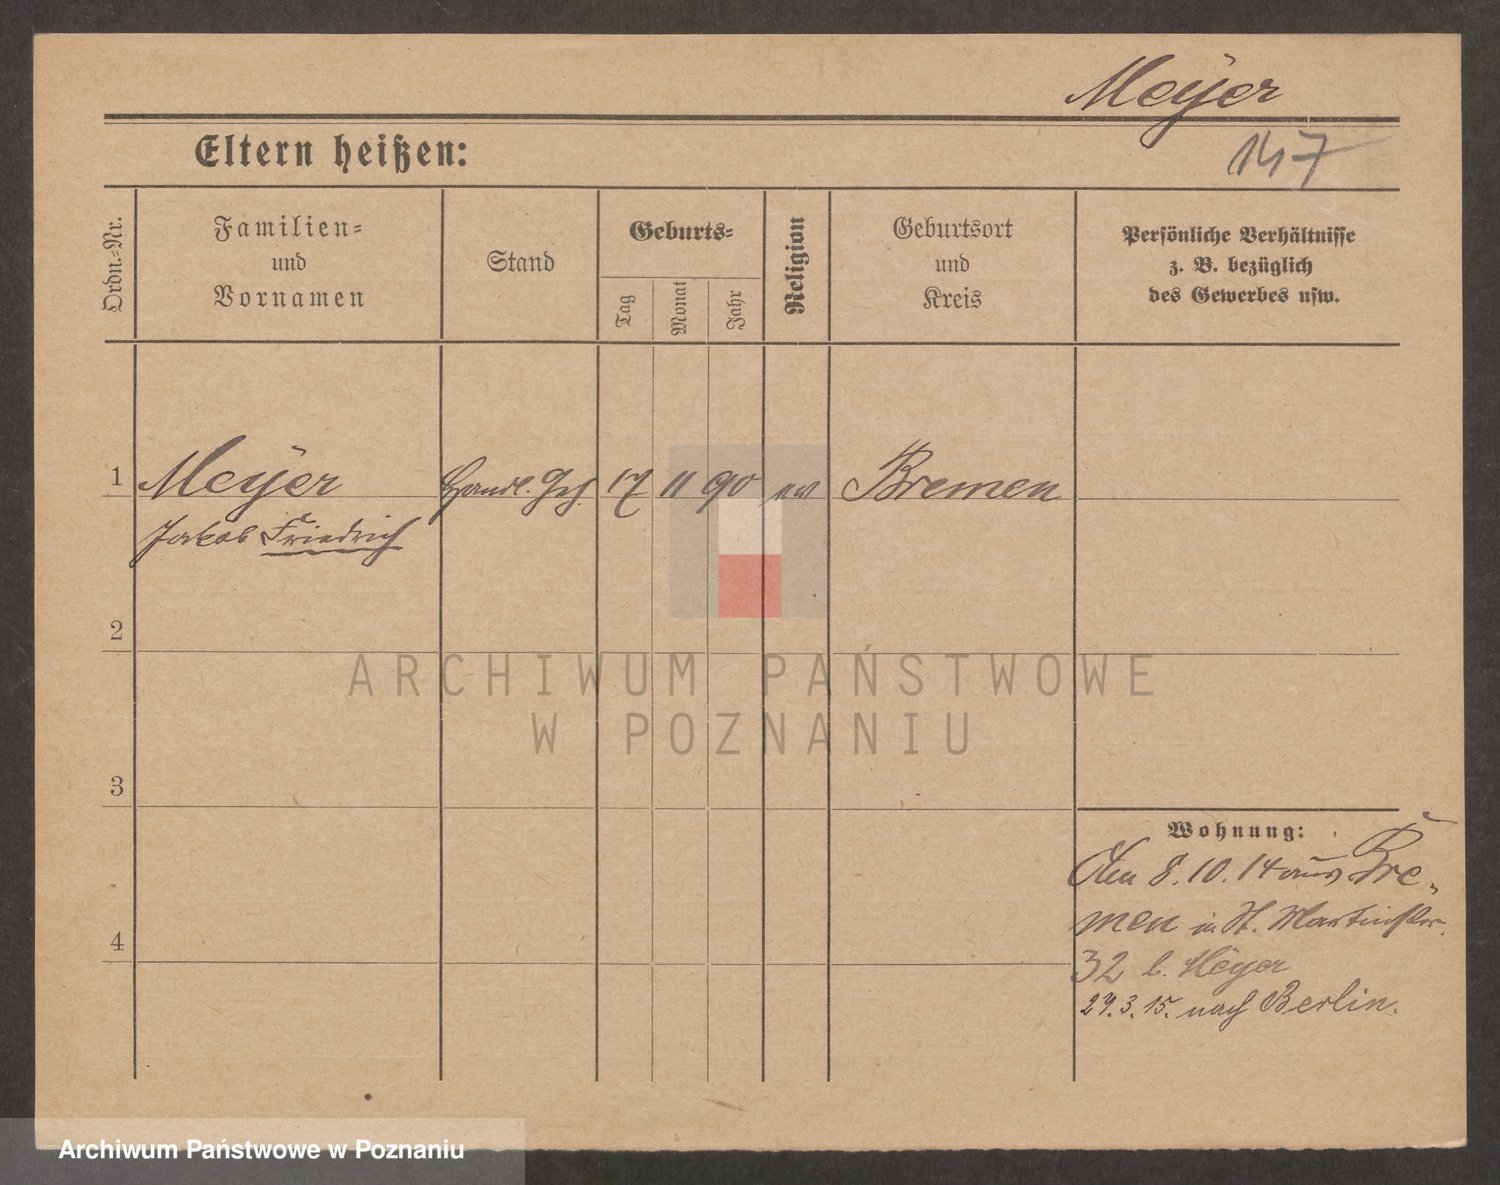 Meÿer
147
Eltern heißen:
Ordn.-Nr.
Familien-
und
Vornamen
Stand
Geburts-
Tag
Monat
Jahr
Religion
Geburtsort
und
Kreis
Persönliche Verhältnisse
z. B. bezüglich
des Gewerbes usw.
1 Meÿer Handl. Geh. 17 11 90 ev Bremen
Jakob Friedrich
2
ARCHIWUM PAŃSTWOWE
W POZNANIU
3
Wohnung:
Den 8.10.14 aus Bre-
men in St. Martinstr.
32 b. Meÿer
4
27.3.15. nach Berlin.
Archiwum Państwowe w Poznaniu